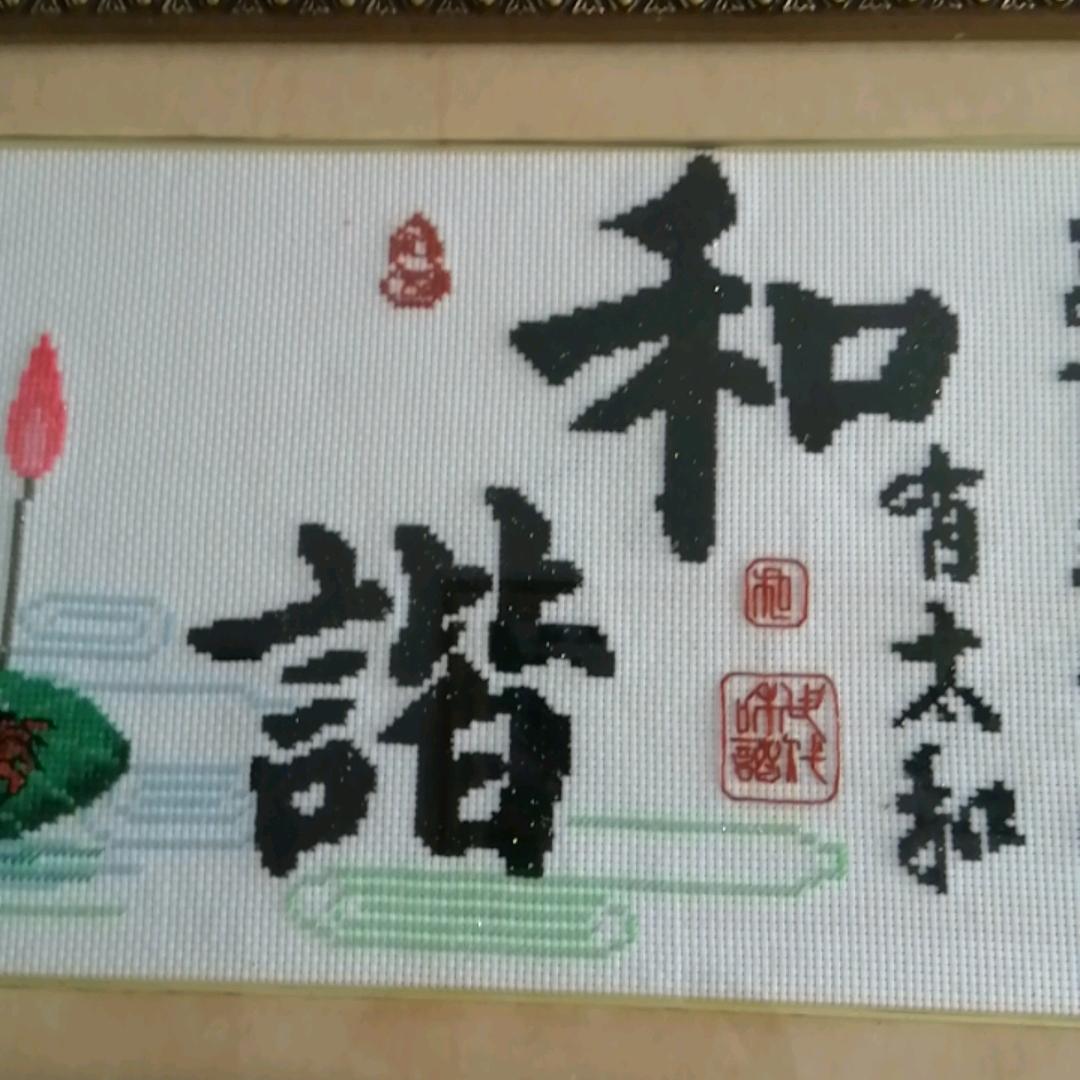 和
諧
有太和